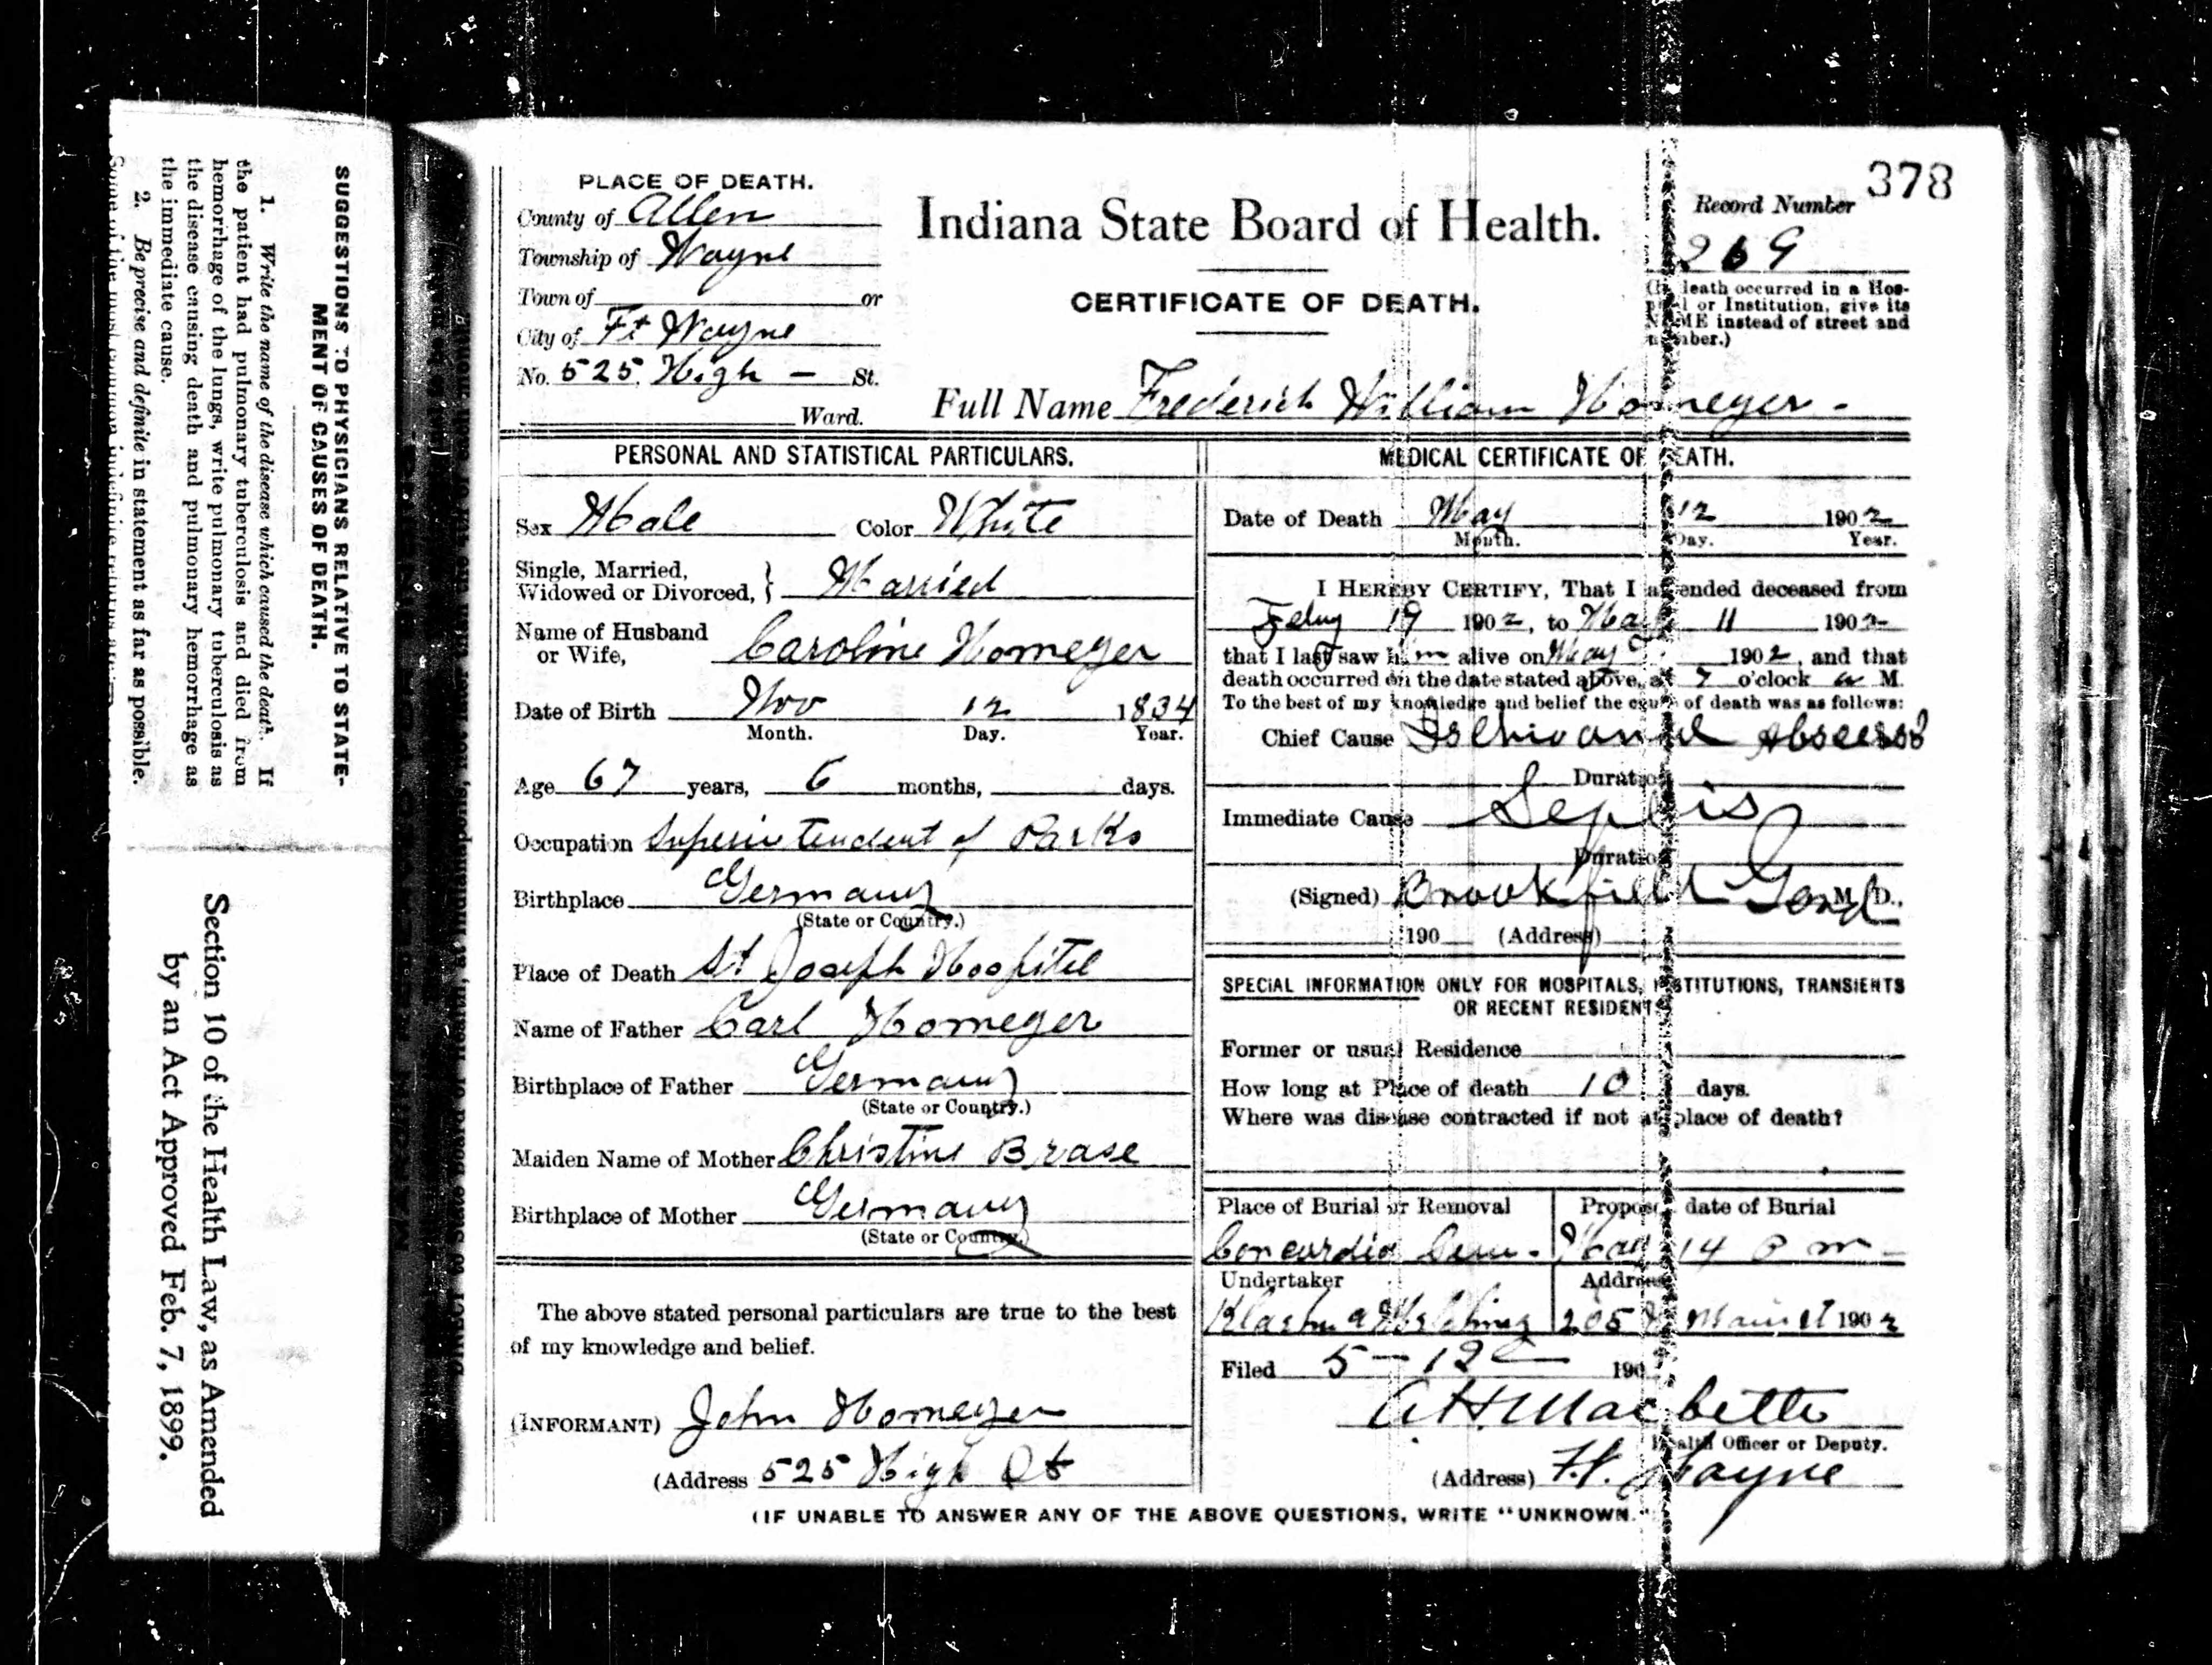 378
PLACE OF DEATH.
County of Allen
Township of Wayne
Town of or
City of Ft Wayne
No. 525 High — St.
Ward.
Indiana State Board of Health.
CERTIFICATE OF DEATH.
Record Number
269
death occurred in a Hos-
or Institution, give its
NAME instead of street and
number.)
Full Name Frederich William Homeyer -
PERSONAL AND STATISTICAL PARTICULARS.
Sex Male Color White
Single, Married,
Widowed or Divorced, } Married
Name of Husband
or Wife, Caroline Homeyer
Date of Birth Nov 12 1834
Month. Day. Year.
Age 67 years, 6 months, days.
Occupation Superintendent of Parks
Birthplace Germany
(State or Country.)
Place of Death St Joseph Hospital
Name of Father Carl Homeyer
Birthplace of Father Germany
(State or Country.)
Maiden Name of Mother Christine Brase
Birthplace of Mother Germany
(State or Country.)
The above stated personal particulars are true to the best
of my knowledge and belief.
(INFORMANT) John Homeyer
(Address 525 High St
MEDICAL CERTIFICATE OF DEATH.
Date of Death May 12 1902
Month. Day. Year.
I HEREBY CERTIFY, That I attended deceased from
Feby 19 1902, to May 11 1902
that I last saw him alive on May 1902, and that
death occurred on the date stated above, at 7 o'clock a M.
To the best of my knowledge and belief the cause of death was as follows:
Chief Cause Ischio anal Abscess
Duration
Immediate Cause Sepsis
Duration
(Signed) Brookfield Gard M. D.,
190 (Address)
SPECIAL INFORMATION ONLY FOR HOSPITALS, INSTITUTIONS, TRANSIENTS
OR RECENT RESIDENTS
Former or usual Residence
How long at Place of death 10 days.
Where was disease contracted if not at place of death?
Place of Burial or Removal
Concordia Cem.
Proposed date of Burial
May 14 P m —
Undertaker
Address
205 Main st 1902
Filed 5—12— 190
A H Macbeth
Health Officer or Deputy.
(Address) Ft. Wayne
(IF UNABLE TO ANSWER ANY OF THE ABOVE QUESTIONS, WRITE "UNKNOWN."
SUGGESTIONS TO PHYSICIANS RELATIVE TO STATE-
MENT OF CAUSES OF DEATH.
1. Write the name of the disease which caused the death. If
the patient had pulmonary tuberculosis and died from
hemorrhage of the lungs, write pulmonary tuberculosis as
the disease causing death and pulmonary hemorrhage as
the immediate cause.
2. Be precise and definite in statement as far as possible.
Section 10 of the Health Law, as Amended
by an Act Approved Feb. 7, 1899.